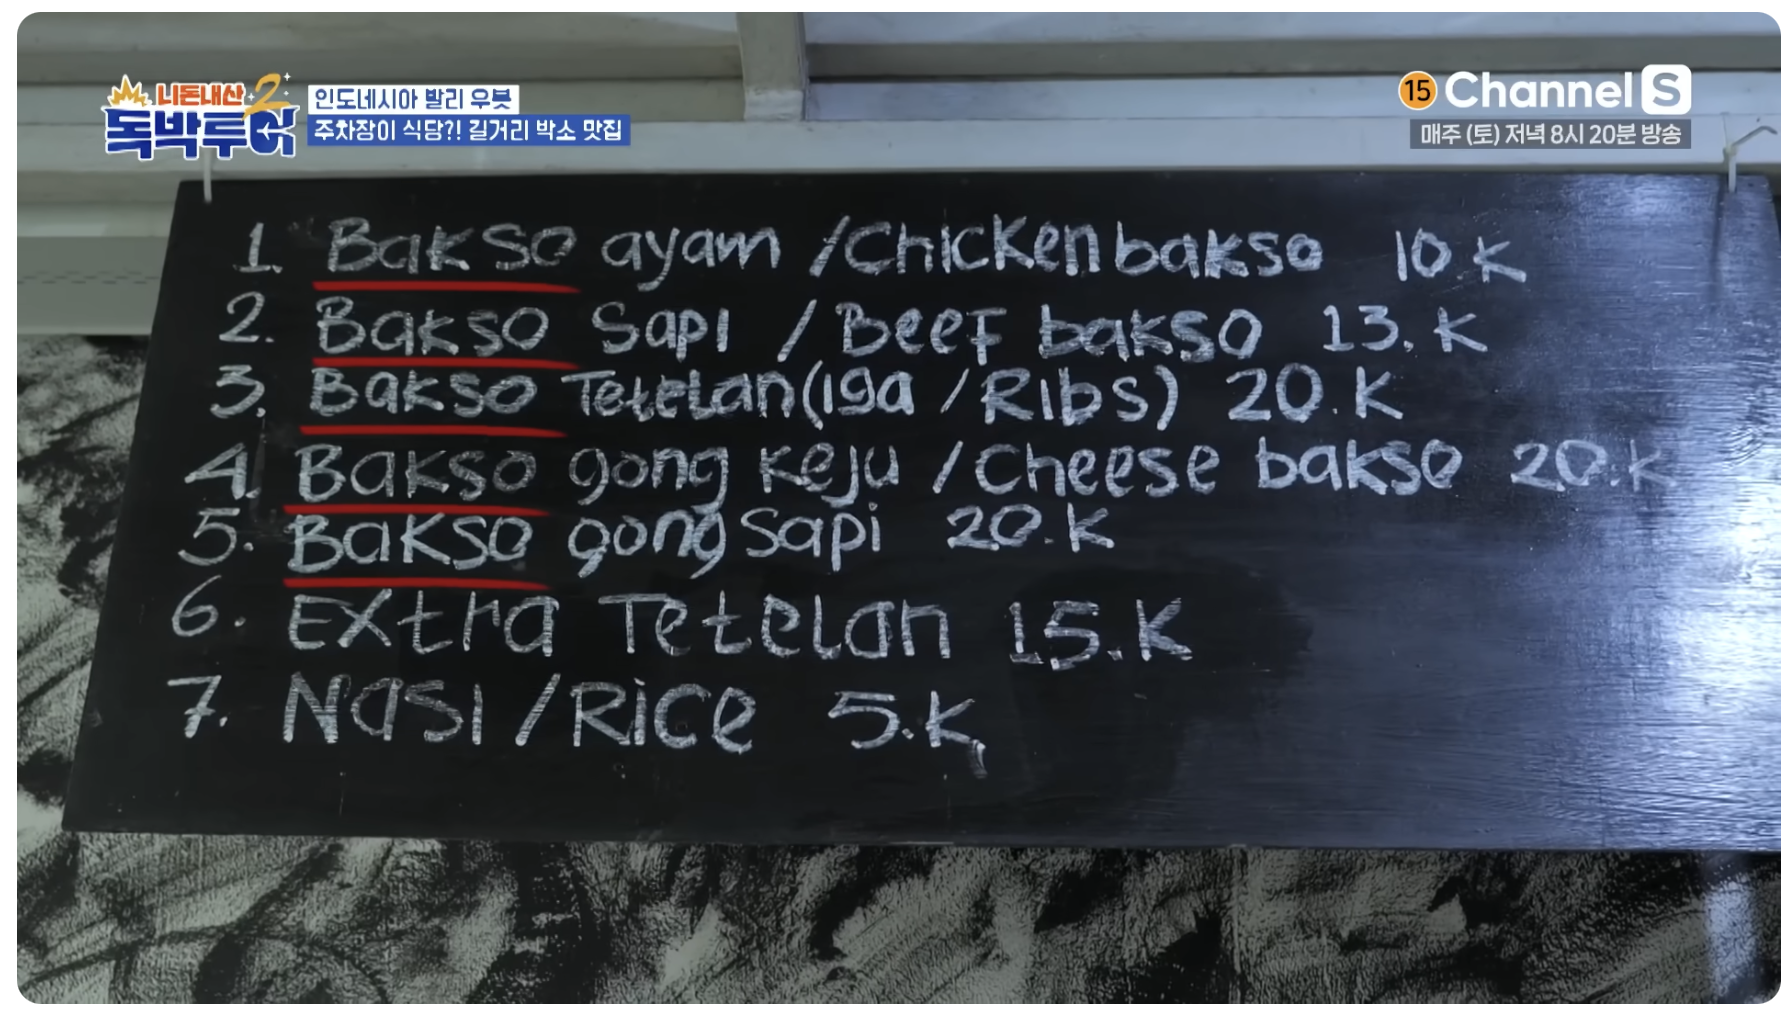 니돈내산 2
독박투어
인도네시아 발리 우붓
주차장이 식당?! 길거리 박소 맛집
15 Channel S
매주 (토) 저녁 8시 20분 방송
1. Bakso ayam / Chicken bakso 10 K
2. Bakso Sapi / Beef bakso 13. K
3. Bakso Tetelan (iga / Ribs) 20. K
4. Bakso gong keju / Cheese bakso 20. K
5. Bakso gong Sapi 20. K
6. Extra Tetelan 15. K
7. Nasi / Rice 5. K